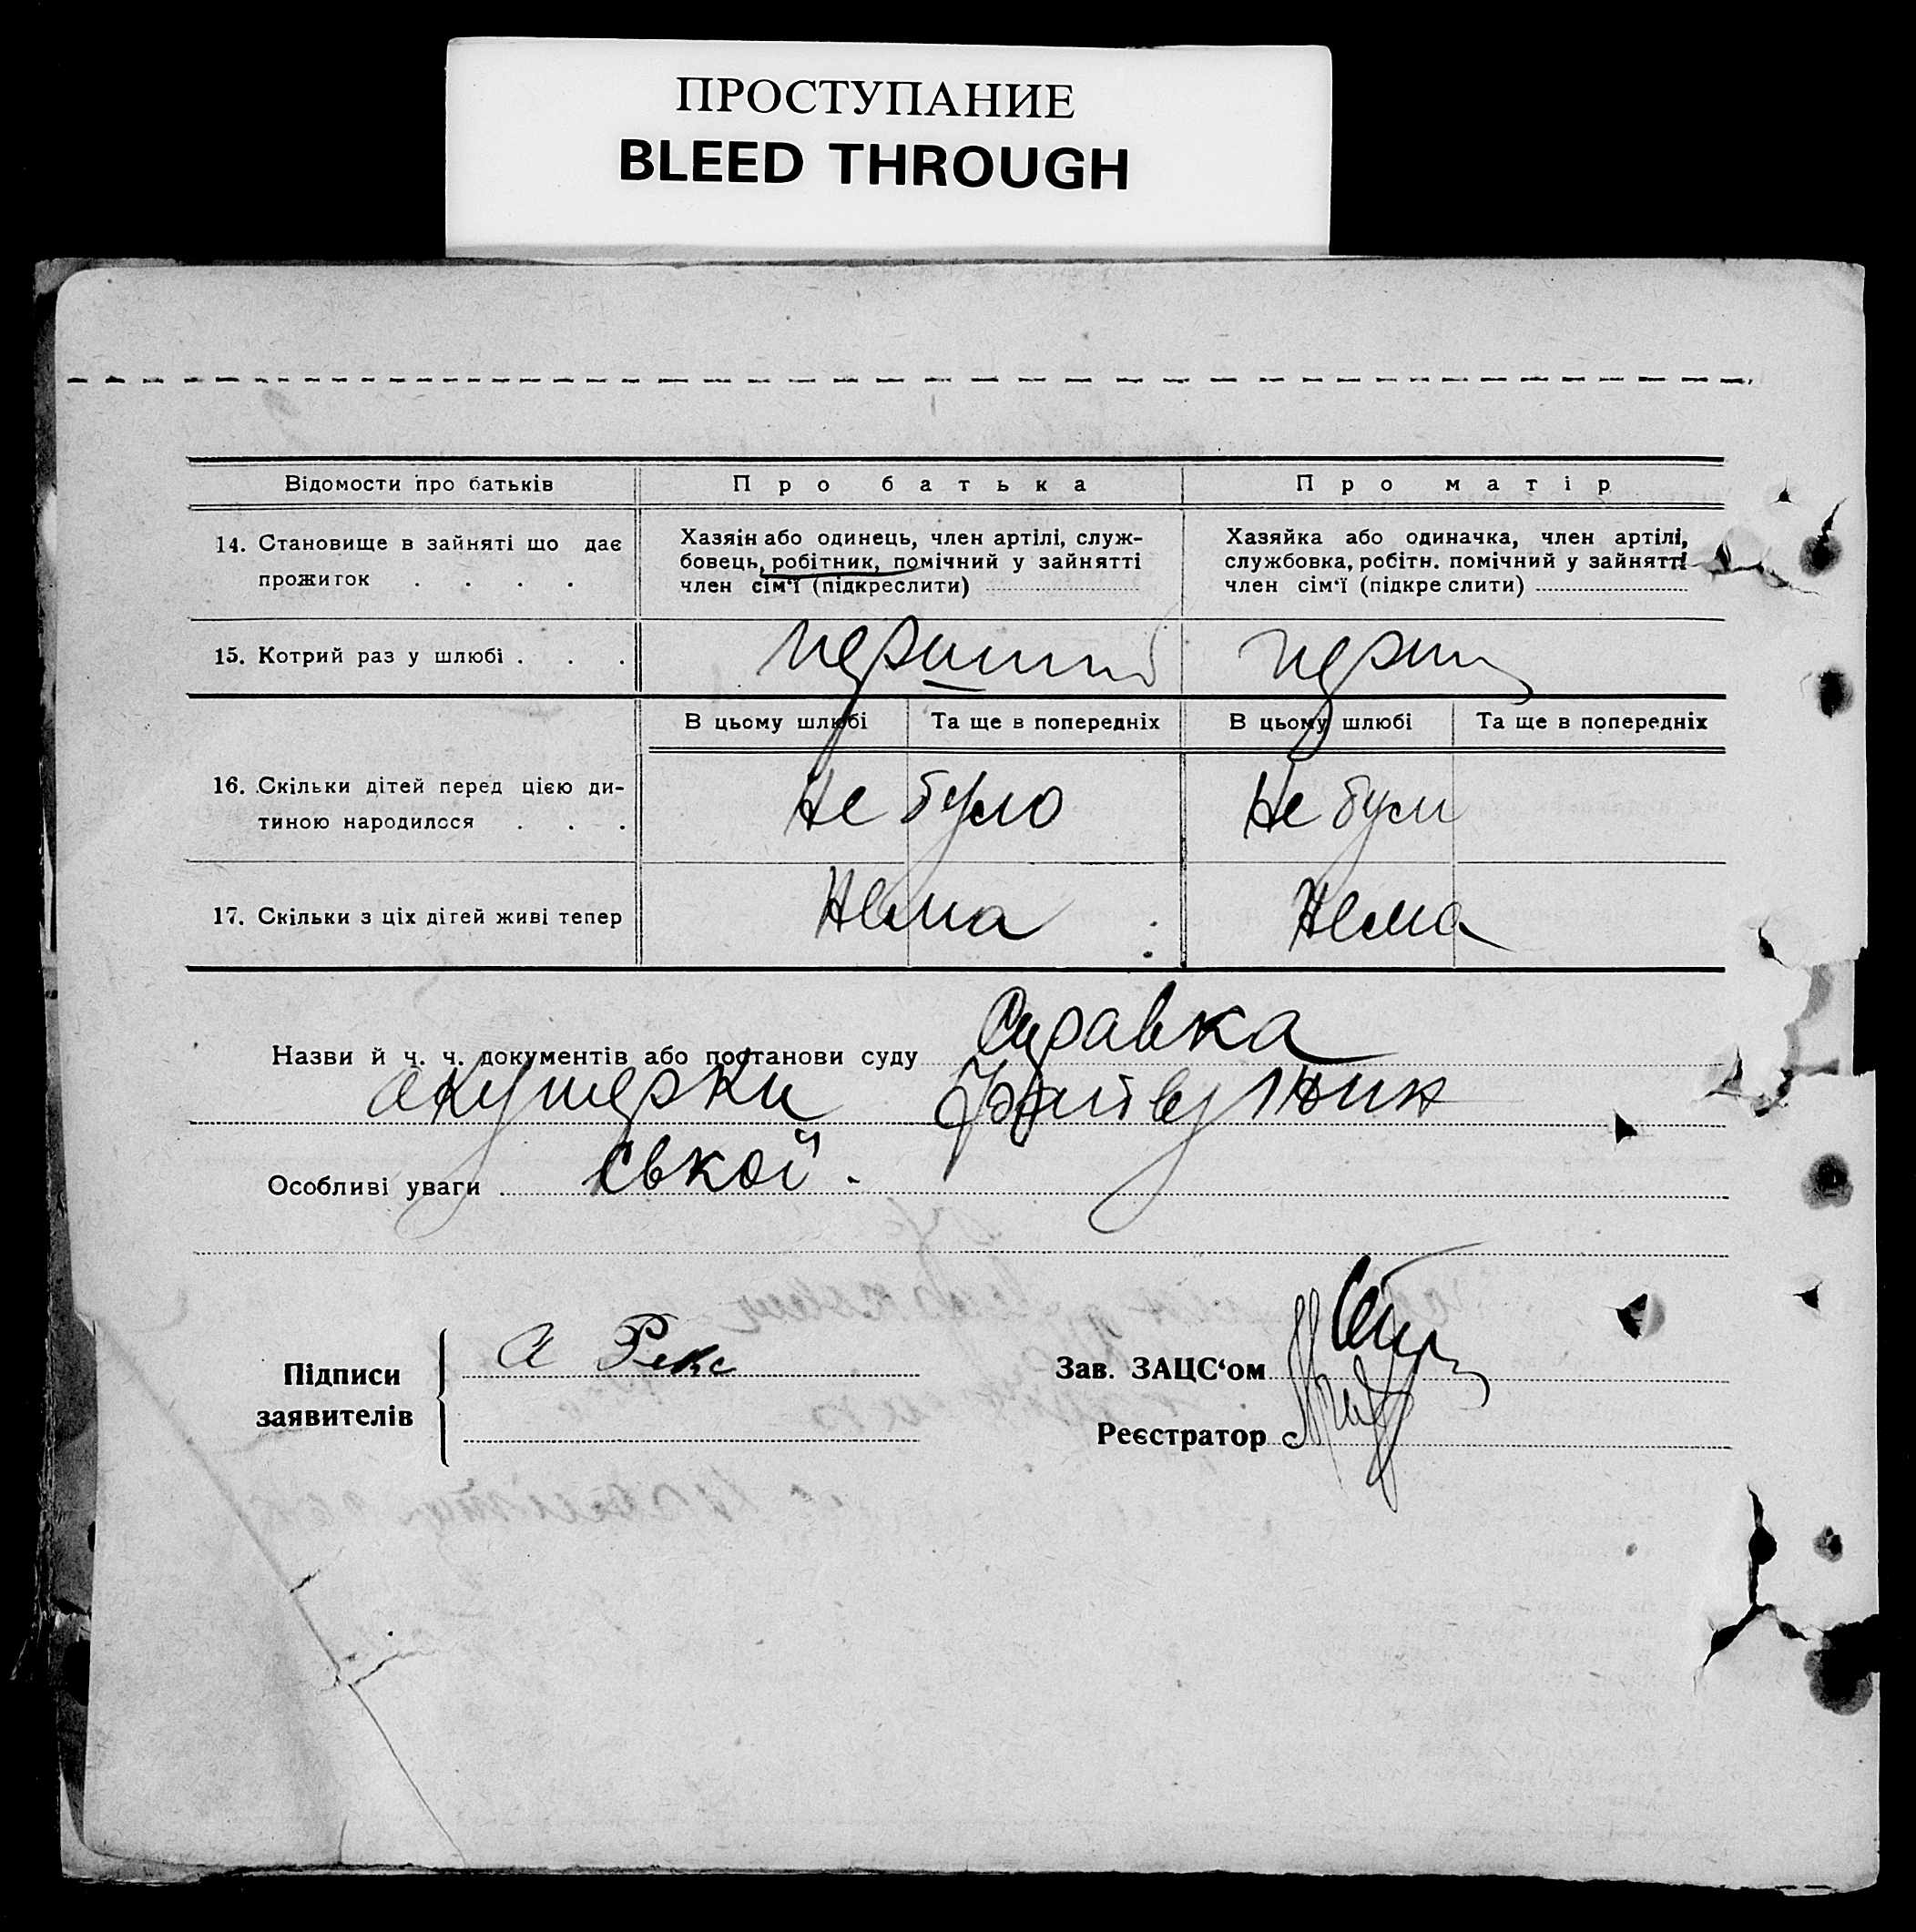 ПРОСТУПАНИЕ
BLEED THROUGH
Відомости про батьків
Про батька
Про матір
14. Становище в зайняті що дає
прожиток . . . .
Хазяін або одинець, член артілі, служ-
бовець, робітник, помічний у зайнятті
член сім'ї (підкреслити)
Хазяйка або одиначка, член артілі,
службовка, робітн. помічний у зайнятті
член сім'ї (підкре слити)
15. Котрий раз у шлюбі . . .
перший
В цьому шлюбі
Та ще в попередніх
В цьому шлюбі
Та ще в попередніх
16. Скільки дітей перед цією ди-
тиною народилося . . .
Не було
Не було
17. Скільки з ціх дітей живі тепер
Нема
Нема
Назви й ч. ч. документів або постанови суду Справка
акушерки
Особливі уваги ської.
Підписи
заявителів
А Рекс
Зав. ЗАЦС'ом
Реєстратор